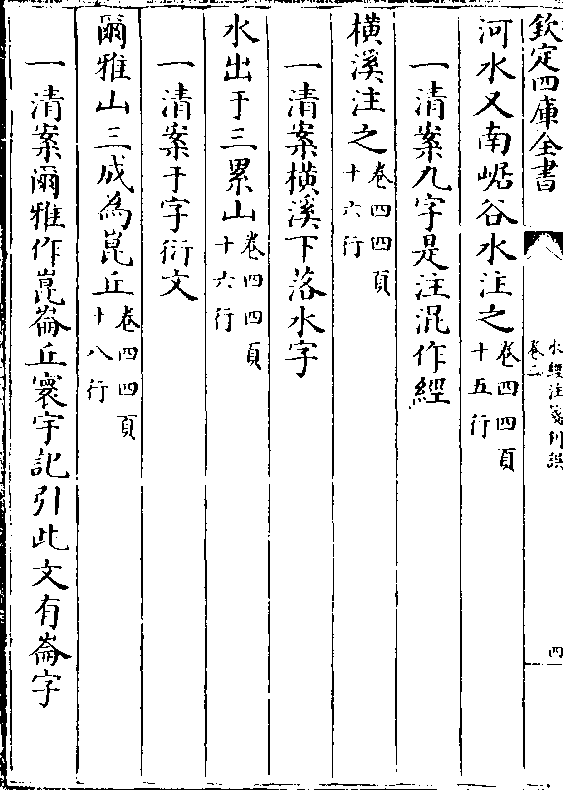 欽定四庫全書
水經注箋刋誤
卷二
四
河水又南崌谷水注之卷四四頁十五行
一清案九字是注混作經
橫溪注之卷四四頁十六行
一清案橫溪下落水字
水出于三累山卷四四頁十六行
一清案于字衍文
爾雅山三成為崑丘卷四四頁十八行
一清案爾雅作崑崙丘寰宇記引此文有崙字